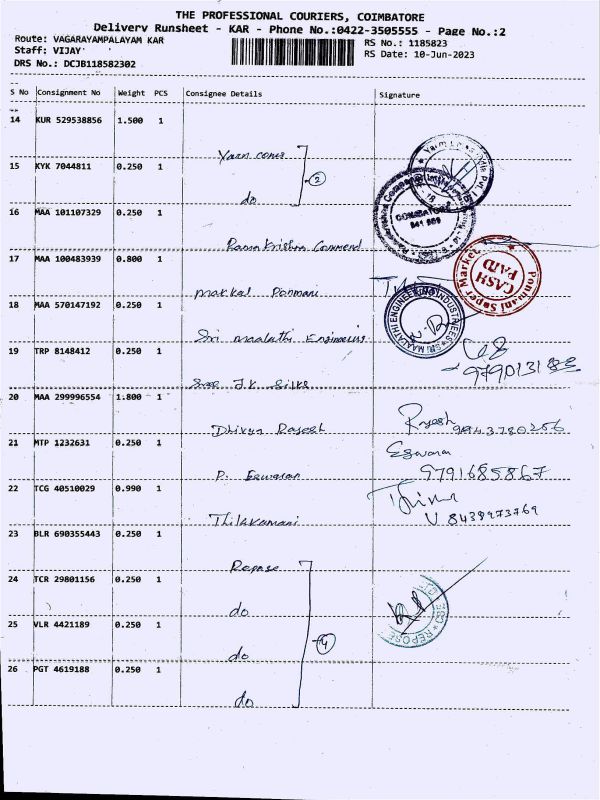 THE PROFESSIONAL COURIERS, COIMBATORE
Delivery Runsheet - KAR - Phone No.:0422-3505555 - Page No.:2
Route: VAGARAYAMPALAYAM KAR
RS No.: 1185823
Staff: VIJAY
RS Date: 10-Jun-2023
DRS No.: DCJB118582302
S No Consignment No Weight PCS Consignee Details Signature
14 KUR 529538856 1.500 1
Yarn cone
15 KYK 7044811 0.250 1
2
do
16 MAA 101107329 0.250 1
COIMBATORE
641 659
Ramakrishna
17 MAA 100483939 0.800 1
Ponmani Super Market
CASH PAID
Makkal Ponmani
18 MAA 570147192 0.250 1
SRI MAALATHI ENGINEERING INDUSTRIES
Sri Maalathi Engineering
19 TRP 8148412 0.250 1
Sree J.K Silks
20 MAA 299996554 1.800 1
Rajesh
Dhivya Rajesh
21 MTP 1232631 0.250 1
Eswaran
P. Eswaran
9791685867
22 TCG 40510029 0.990 1
Thilakamani
V 8438973769
23 BLR 690355443 0.250 1
Repose
24 TCR 29801156 0.250 1
do
REPOSE
25 VLR 4421189 0.250 1
4
do
26 PGT 4619188 0.250 1
do